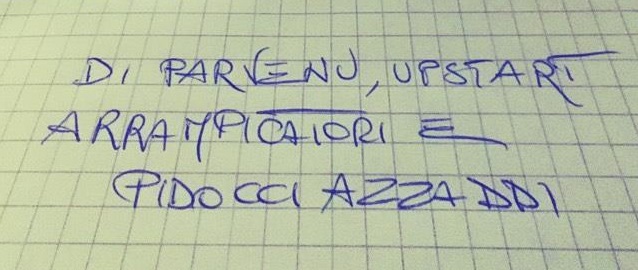 DI PARVENU, UPSTART
ARRAMPICATORI E
PIDOCCI AZZADDI